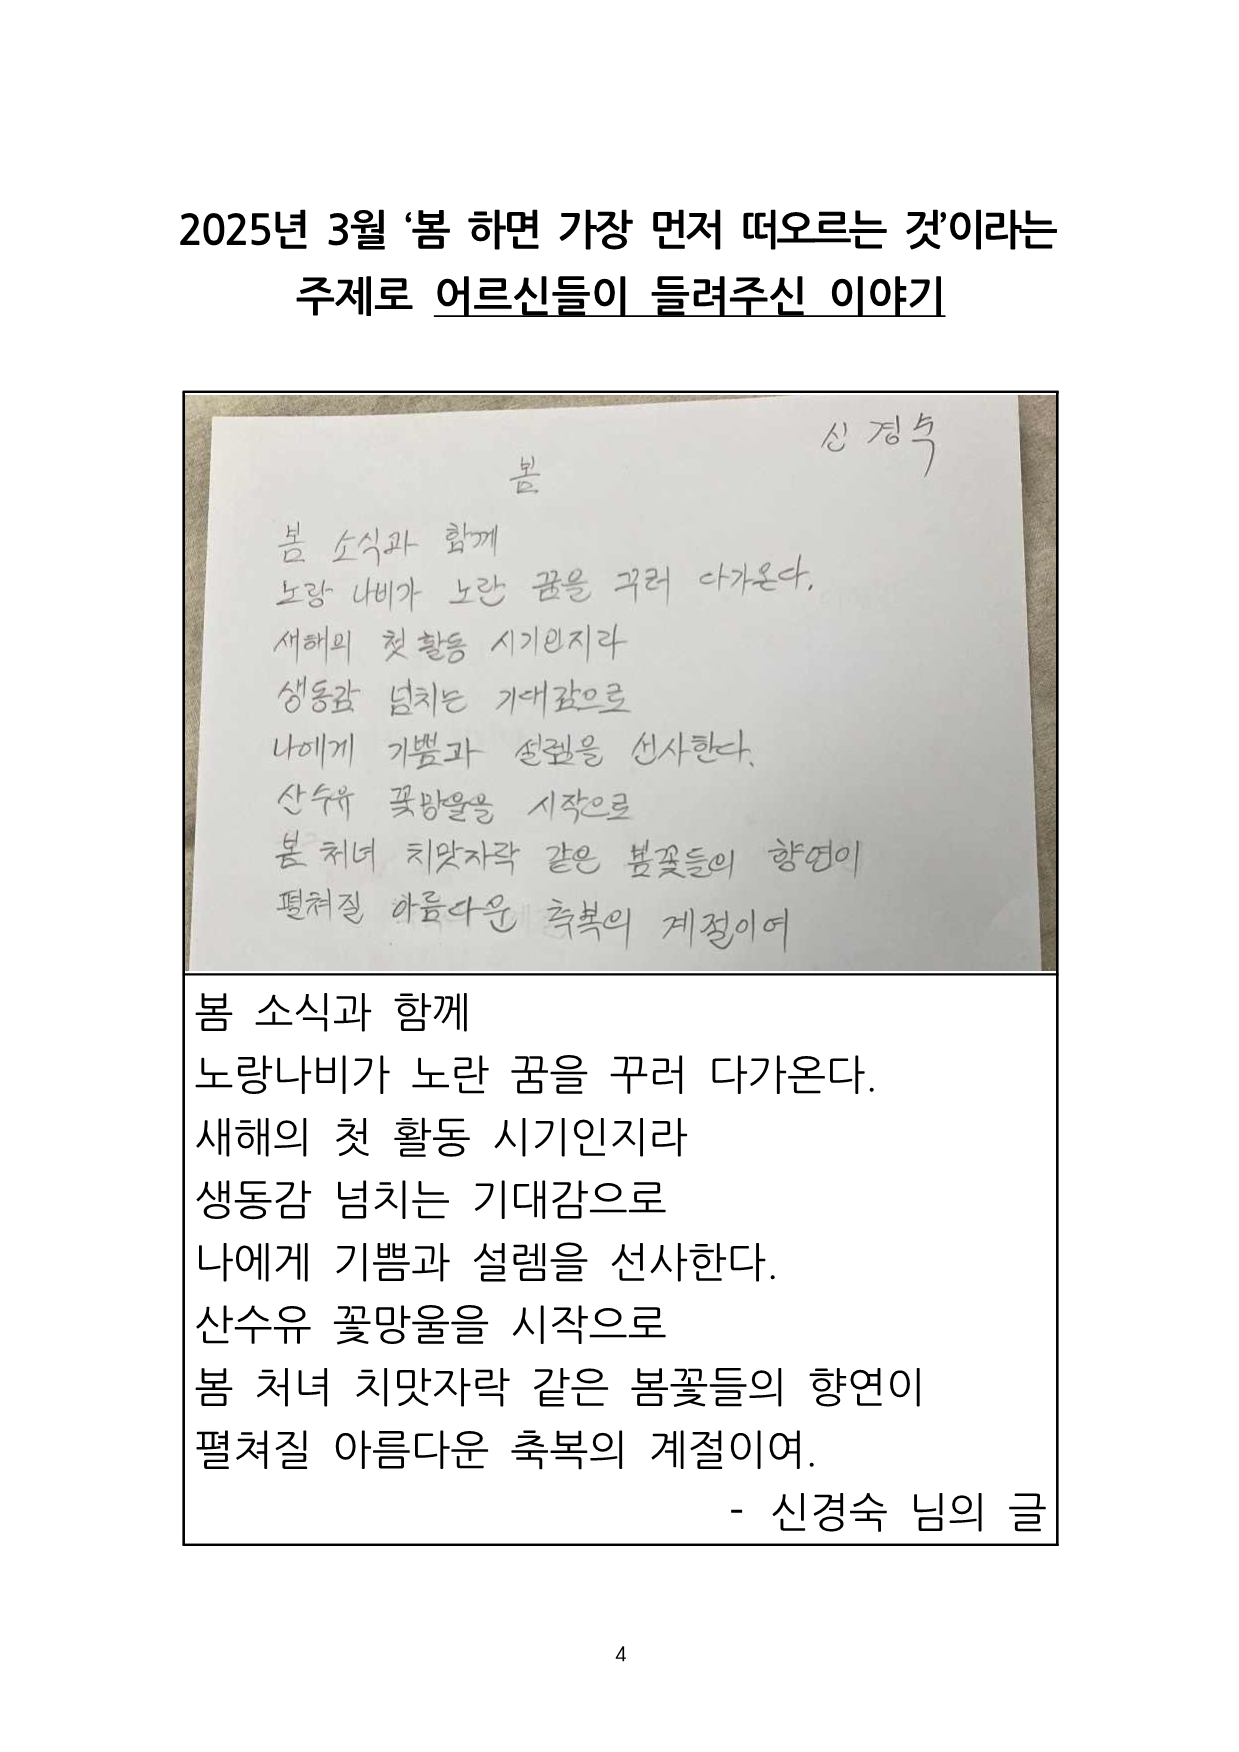 2025년 3월 ‘봄 하면 가장 먼저 떠오르는 것’이라는
주제로 어르신들이 들려주신 이야기
신경숙
봄
봄 소식과 함께
노랑 나비가 노란 꿈을 꾸러 다가온다.
새해의 첫 활동 시기인지라
생동감 넘치는 기대감으로
나에게 기쁨과 설렘을 선사한다.
산수유 꽃망울을 시작으로
봄 처녀 치맛자락 같은 봄꽃들의 향연이
펼쳐질 아름다운 축복의 계절이여
봄 소식과 함께
노랑나비가 노란 꿈을 꾸러 다가온다.
새해의 첫 활동 시기인지라
생동감 넘치는 기대감으로
나에게 기쁨과 설렘을 선사한다.
산수유 꽃망울을 시작으로
봄 처녀 치맛자락 같은 봄꽃들의 향연이
펼쳐질 아름다운 축복의 계절이여.
- 신경숙 님의 글
4